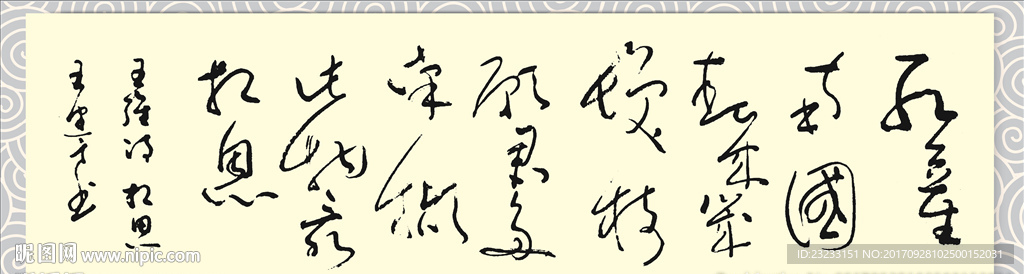 紅豆生
南國
春来幾
發枝
願君多
采撷
此物最
相思
王維诗 相思
王 书
昵图网 www.nipic.com
ID:23233151 NO:20170928102500152031